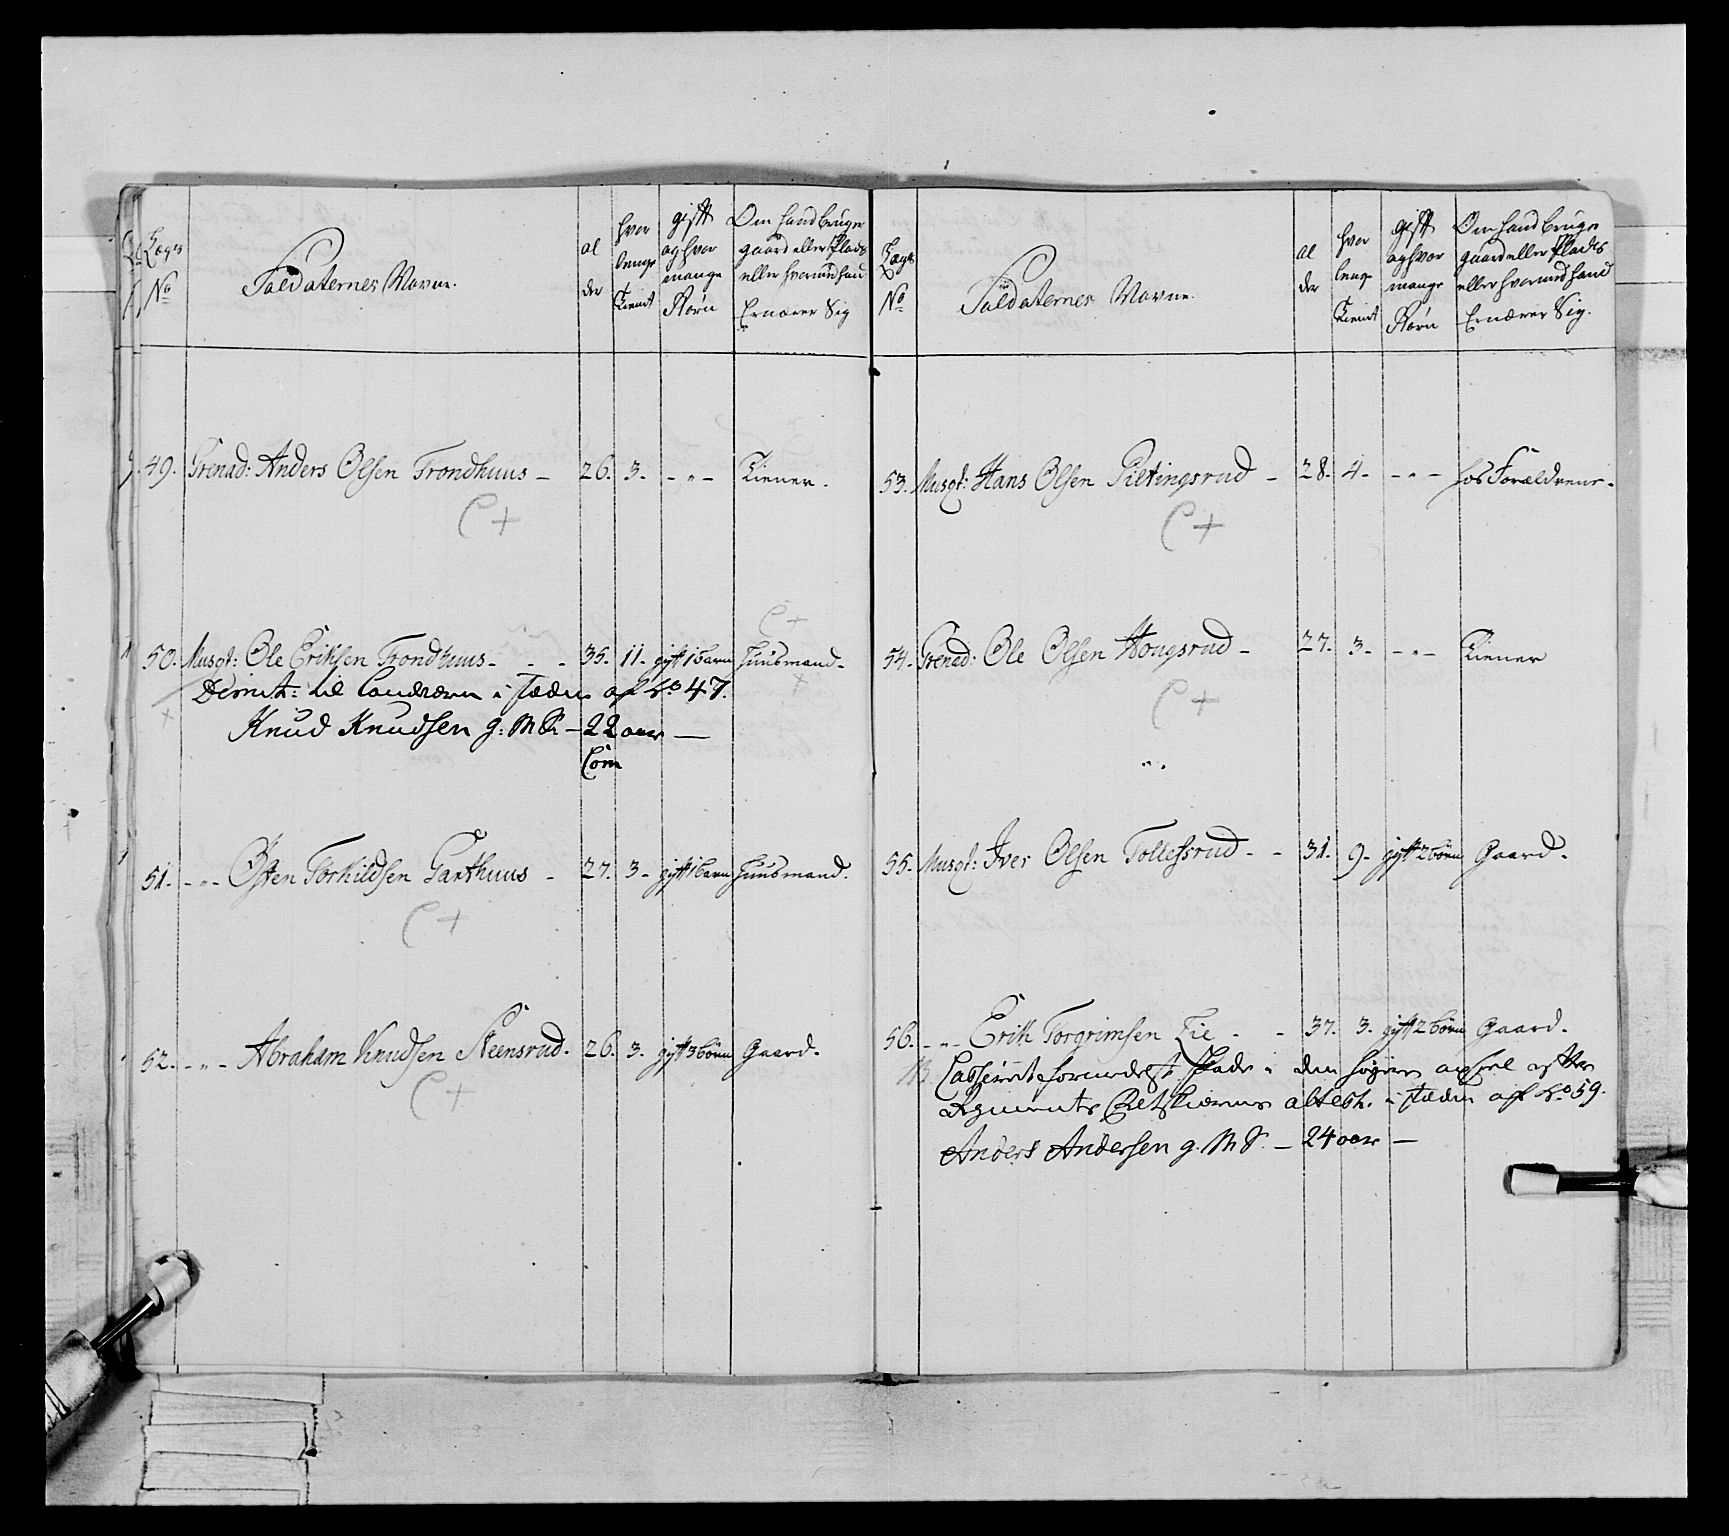 Lægs No
Soldaternes Navne.
al der
hvor lenge tient
gift og hvor mange Børn
Om hand bruger gaard eller Plads eller hvormed hand Ernærer Sig
49. Grenad: Anders Olsen Trondhuus - 26. 3. - " - Tiener.
C +
C +
50. Musqt: Ole Eriksen Trondhuus - - - 35. 11. gift 1 barn Huusmand.
Dimit: til Landværn i stæden af No 47.
Knud Knudsen g: M S. - 22 aar -
Com
51. - " - Østen Torkildsen Garthuus - 27. 3 - gift 1 barn Huusmand.
C +
52. - " - Abraham Knudsen Steensrud. 26. 3. gift 3 børn Gaard.
C +
Lægs No
Soldaternes Navne.
al der
hvor lenge tient
gift og hvor mange Børn
Om hand bruger gaard eller Plads eller hvormed hand Ernærer Sig.
53. Musqt: Hans Olsen Piltingsrud - 28. 4 - - " - hos Forældrene.
C +
54. Grenad: Ole Olsen Hougsrud - 27. 3 - - " - Tiener
C +
55. Musqt: Iver Olsen Tollefsrud - - 31. 9 - gift 2 børn Gaard.
56. - " - Erik Torgrimsen Lie - - 37. 3. gift 2 børn Gaard.
Casseret formedelst skade i den høyre efter
Regiments attest. i stæden af No 59.
Anders Andersen g. M S. - 24 aar -